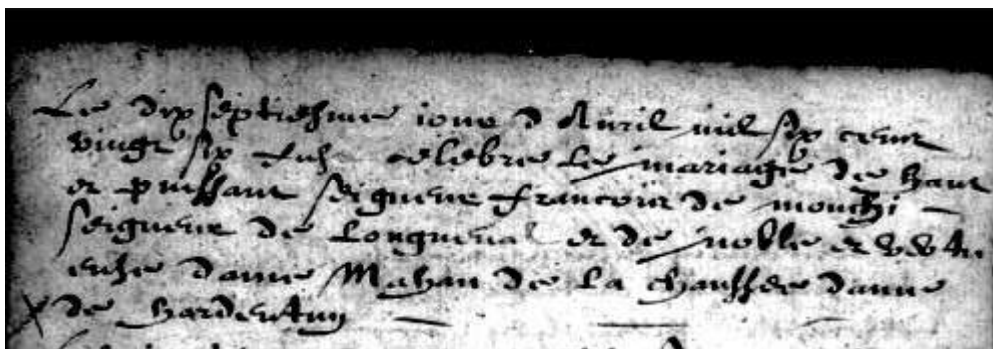 Le dixseptiesme iour d Auril mil six cent
vingt six fut celebre le mariage de haut
et puissant seigneur francois de mouchi
seigneur de Longueual et de noble et vertu
euse dame Mahau de la chaussee dame
de hardentun